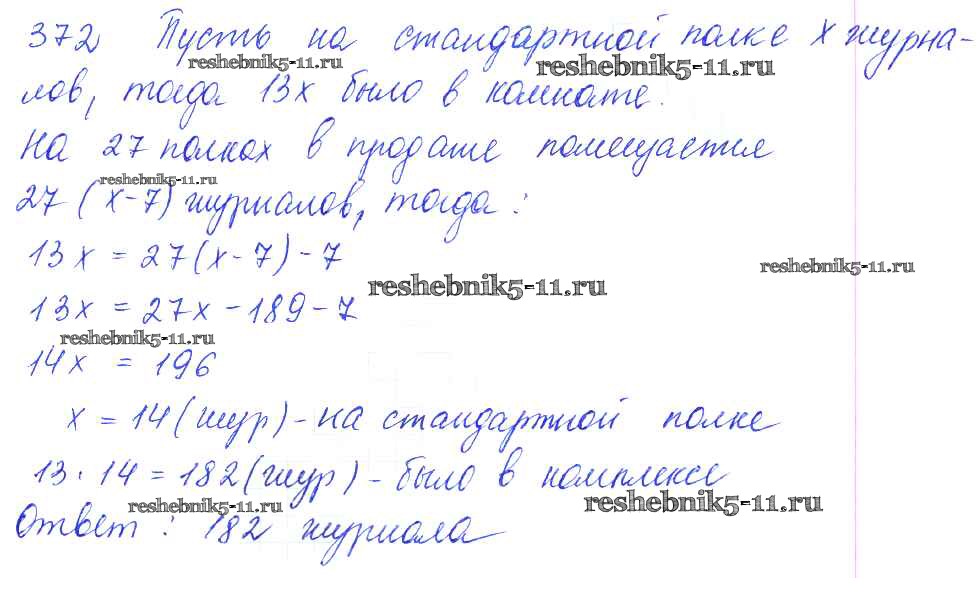 372 Пусть на стандартной полке x журна-
reshebnik5-11.ru reshebnik5-11.ru
лов, тогда 13x было в комнате.
На 27 полках в продаже помещается
reshebnik5-11.ru
27 (x-7) журналов, тогда:
13x = 27(x-7)-7
reshebnik5-11.ru reshebnik5-11.ru
13x = 27x-189-7
reshebnik5-11.ru
14x = 196
x = 14 (жур) - на стандартной полке
13·14 = 182 (жур) - было в комплексе
reshebnik5-11.ru reshebnik5-11.ru
Ответ: 182 журнала